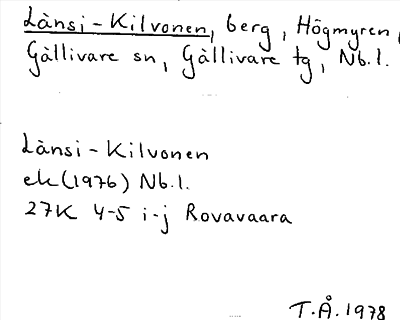 Länsi-Kilvonen, berg, Högmyren,
Gällivare sn, Gällivare tg, Nb.l.
Länsi-Kilvonen
ek(1976) Nb.l.
27K 4-5 i-j Rovavaara
T.Å.1978